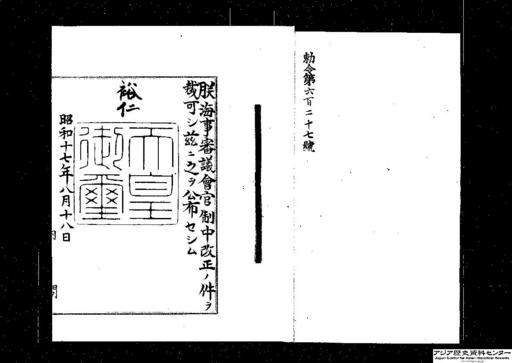 勅令第六百二十七號
朕海事審議會官制中改正ノ件ヲ
裁可シ茲ニ之ヲ公布セシム
裕仁
天皇
御璽
昭和十七年八月十八日
アジア歴史資料センター
Japan Center for Asian Historical Records